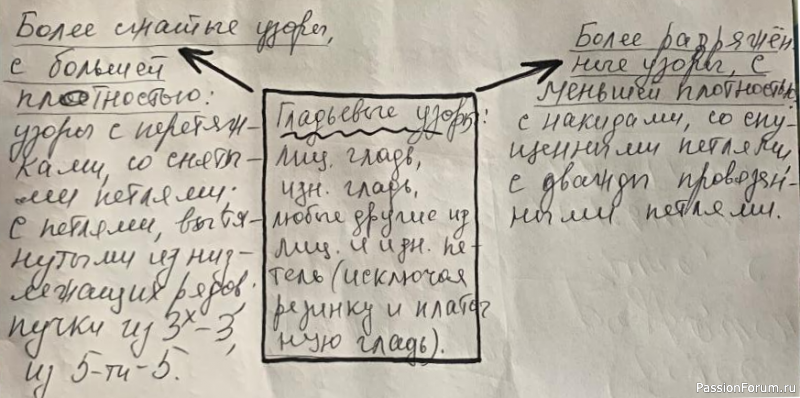 Более сжатые узоры,
с большей
плотностью:
узоры с перетяж-
ками, со сняты-
ми петлями;
с петлями, вытя-
нутыми из ниже-
лежащих рядов;
пучки из 3х-3,
из 5-ти-5.
Гладьевые узоры:
лиц. гладь,
изн. гладь,
любые другие из
лиц. и изн. пе-
тель (исключая
резинку и платоч
ную гладь).
Более разряжён-
ные узоры, с
меньшей плотностью:
с накидами, со спу-
щенными петлями,
с дважды провязан-
ными петлями.
PassionForum.ru